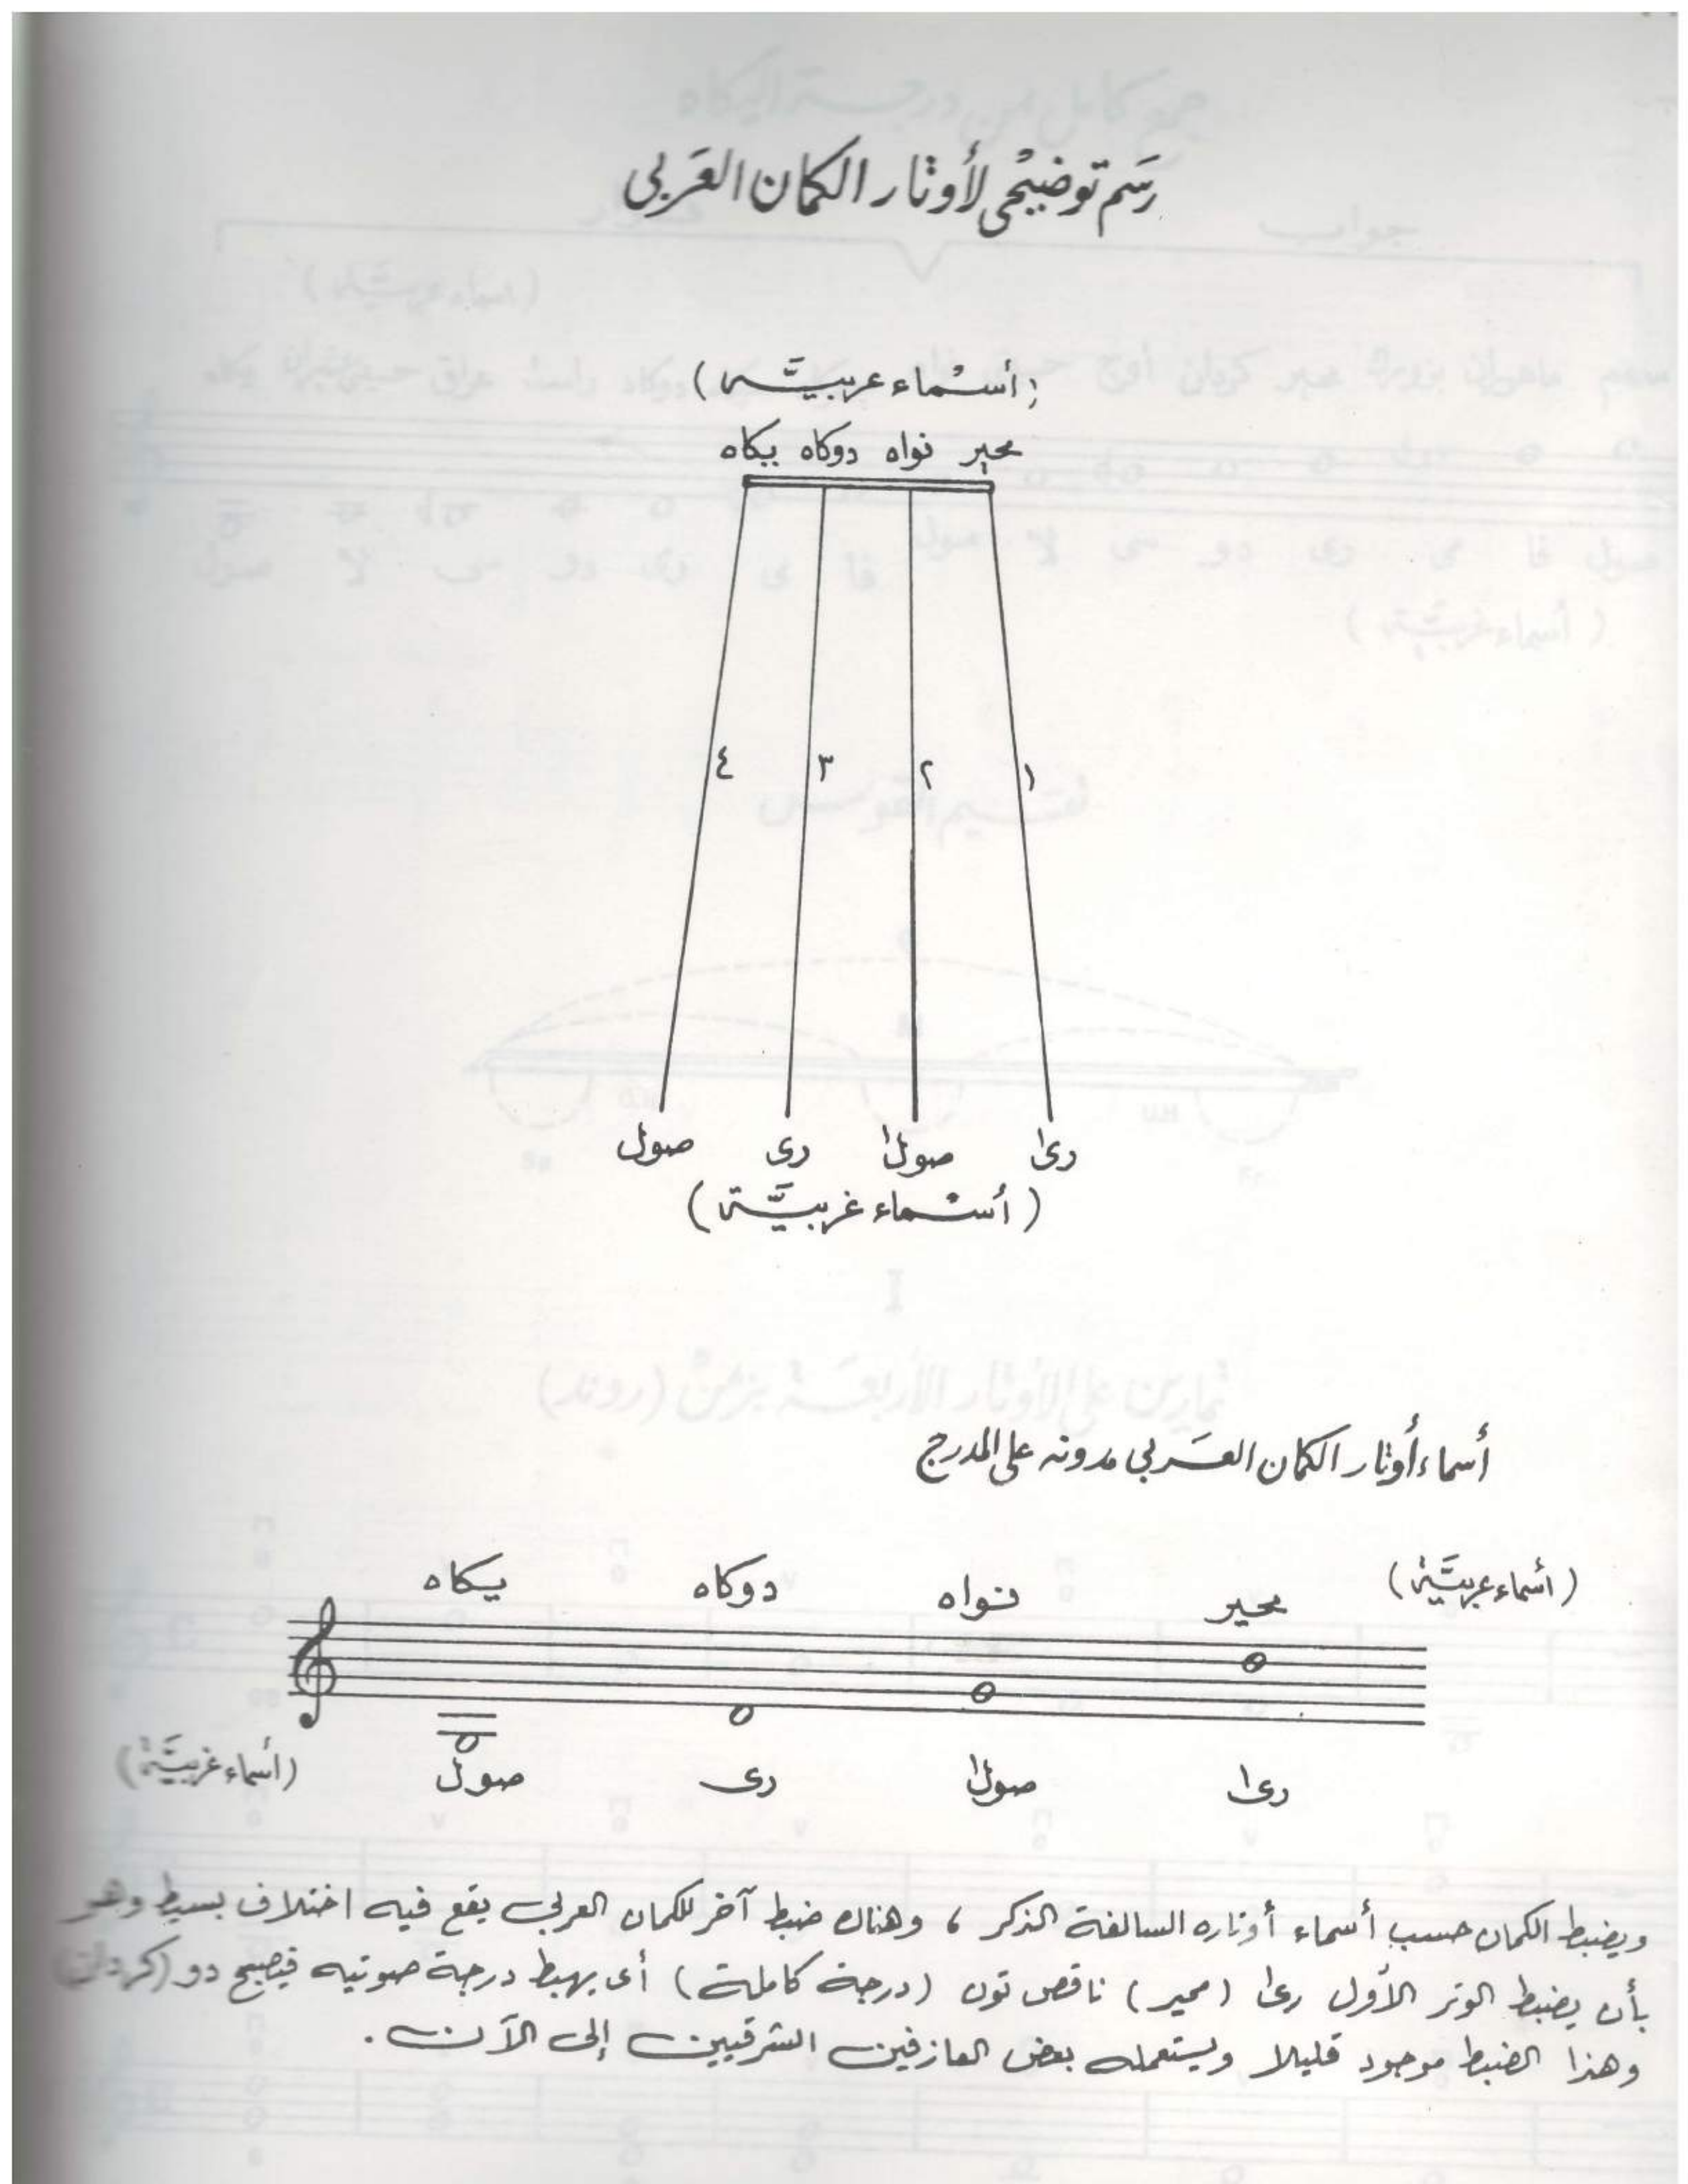 رسم توضيحى لأوتار الكمان العربى
(أسماء عربية)
محير نواه دوكاه يكاه
١ ٢ ٣ ٤
رى١ صول١ رى صول
(أسماء غربية)
أسماء أوتار الكمان العربى مدونه على المدرج
(أسماء عربية)
محير نواه دوكاه يكاه
رى١ صول١ رى صول
(أسماء غربية)
ويضبط الكمان حسب أسماء أوتاره السالفة الذكر ، وهناك ضبط آخر للكمان العربى يقع فيه اختلاف بسيط وهو
بأن يضبط الوتر الأول رى١ (محير) ناقص تون (درجة كاملة) أى يهبط درجة صوتيه فيصبح دو (كردان)
وهذا الضبط موجود قليلا ويستعمله بعض العازفين الشرقيين إلى الآن .